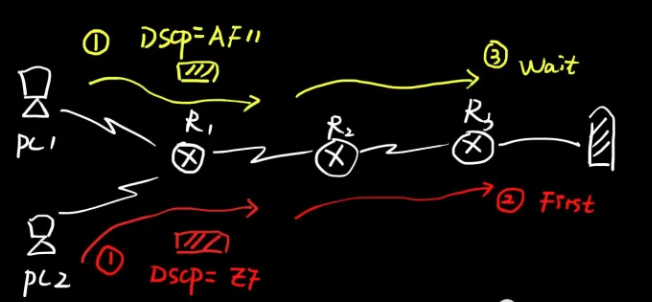 ① DSCP=AF11
③ Wait
PC1
R1
R2
R3
② First
①
DSCP= Z7
PC2